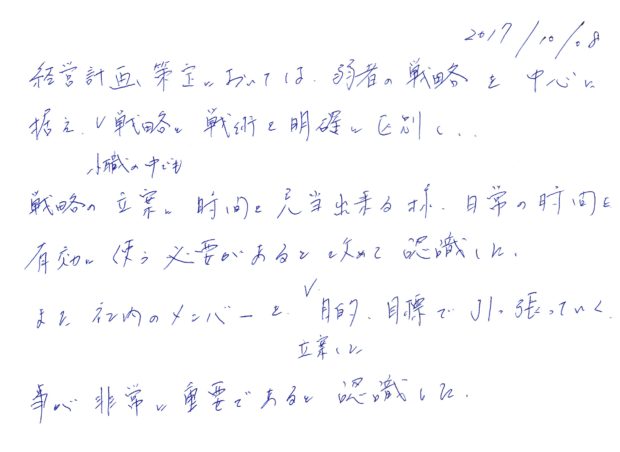 2017/10/08
経営計画策定においては、弱者の戦略を中心に
据え、V戦略と戦術を明確に区別し、、
職の中でも
戦略の立案に時間を充当出来る様、日常の時間を
有効に使う必要があると改めて認識した。
また社内のメンバーを、V目的、目標で引っ張っていく
立案した
事が非常に重要であると認識した。